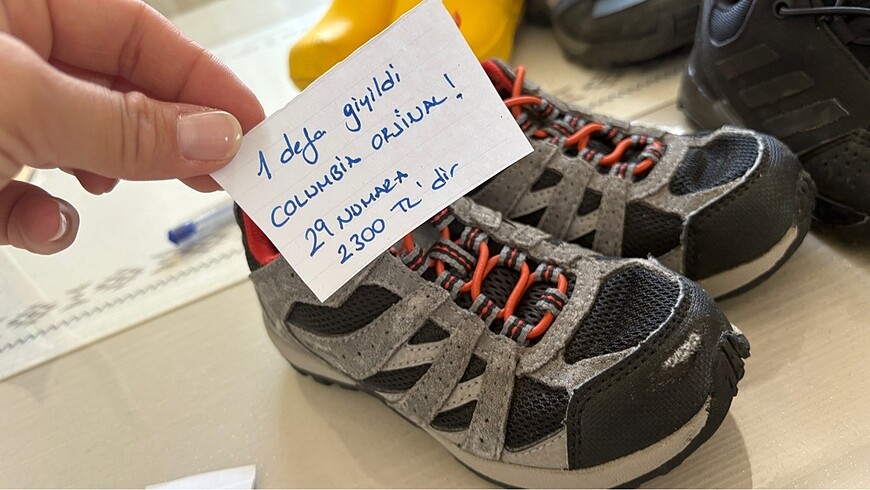 1 defa giyildi
COLUMBIA ORJINAL!
29 NUMARA
2300 TL'dir